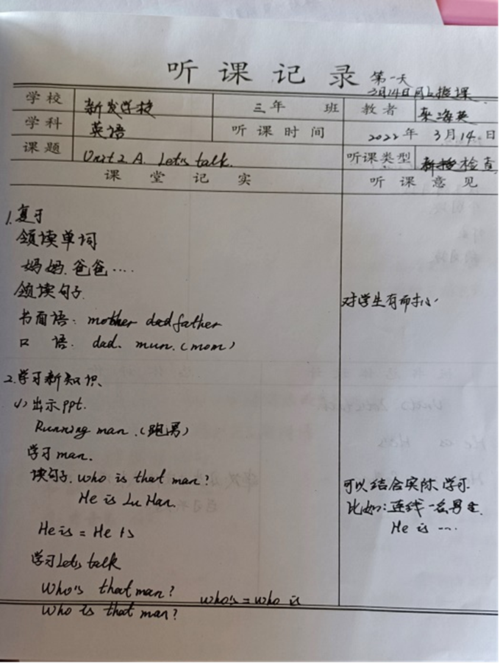 听课记录 第一天
3月14日网上授课
学校 新发学校 三年 班 教者
学科 英语 听课时间 2022年3月14日
课题 Unit 2 A Let's talk. 听课类型 检查
课堂记实 听课意见
1.复习
领读单词
妈妈.爸爸....
领读句子.
书面语: mother dad father
口语: dad. mun. (mom)
对学生有耐心.
2.学习新知识.
(1)出示ppt.
Running man.(跑男)
学习man.
读句子. who is that man?
He is Lu Han.
可以结合实际学习
比如:连线一名男生.
He is ....
He is = He is
学习Let's talk
Who's that man? who's = who is
Who is that man?